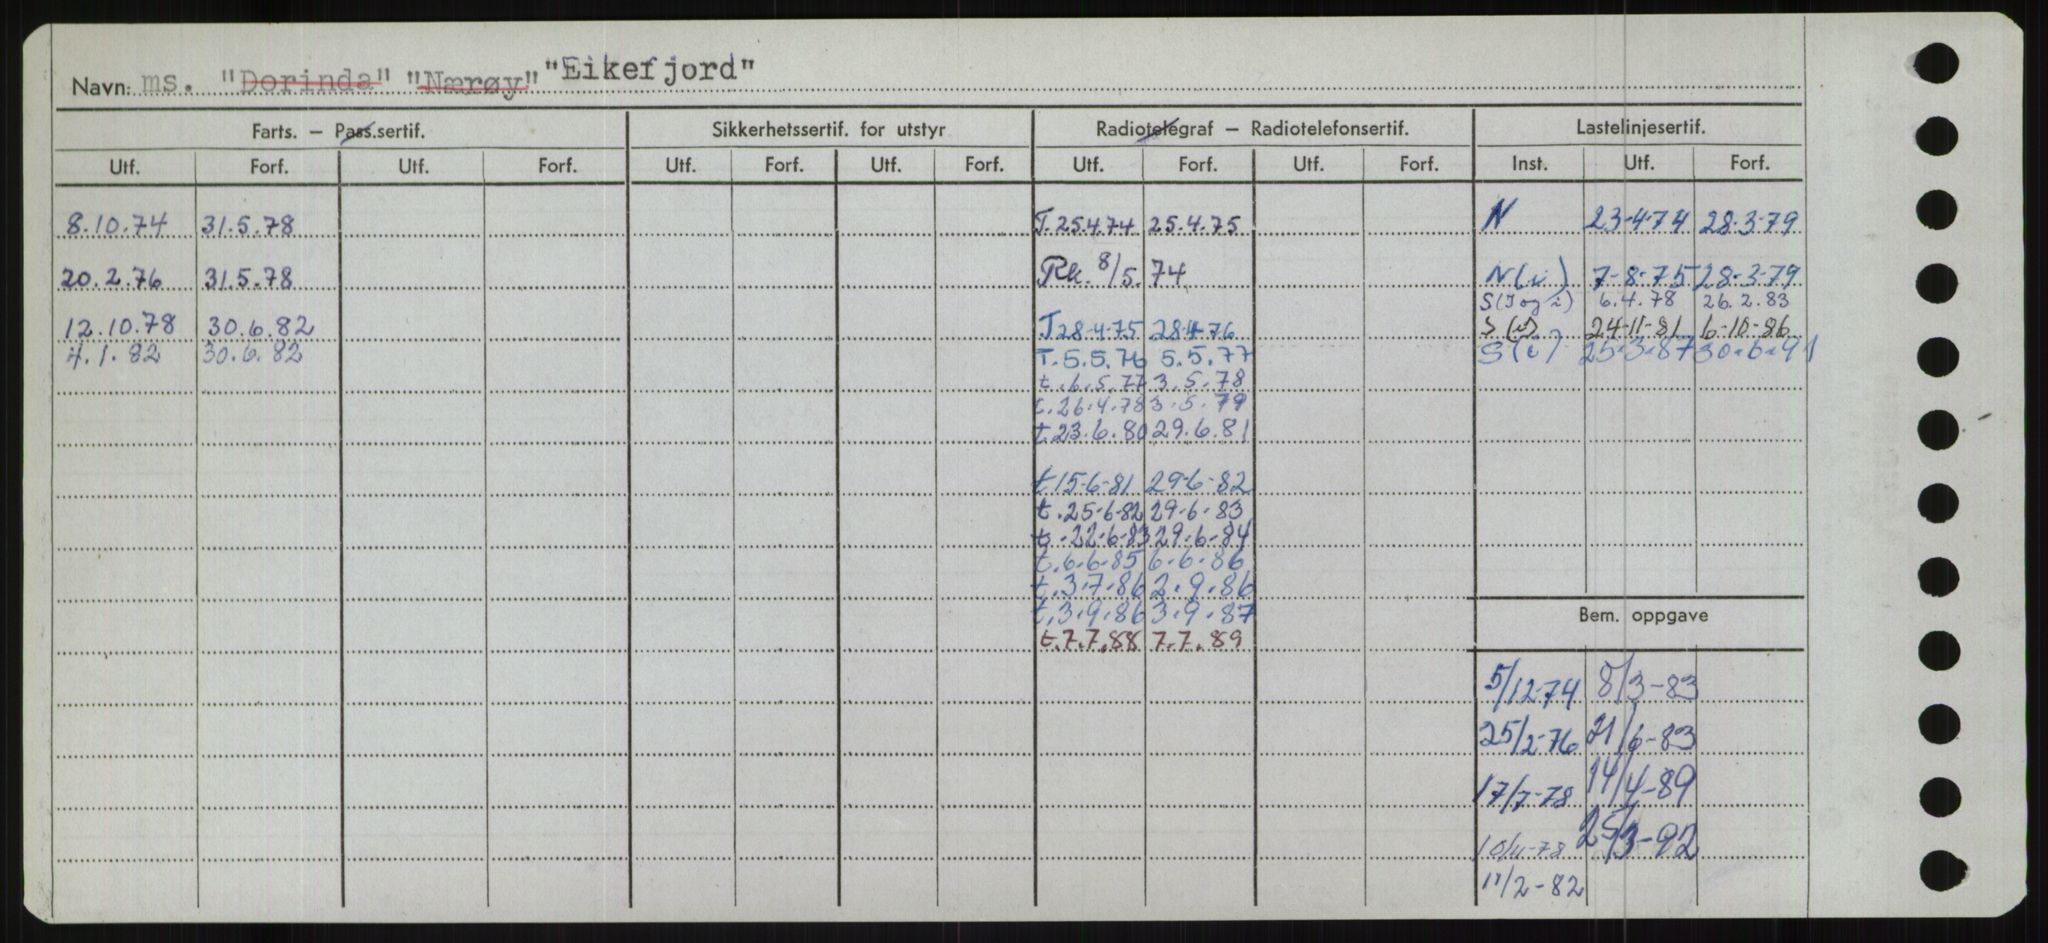 Navn: ms. "Dorinda" "Nærøy" "Eikefjord"
Farts. – Pass.sertif. Sikkerhetssertif. for utstyr Radiotelegraf – Radiotelefonsertif. Lastelinjesertif.
Utf. Forf. Utf. Forf. Utf. Forf. Utf. Forf. Utf. Forf. Utf. Forf. Inst. Utf. Forf.
8.10.74 31.5.78 T.25.4.74 25.4.75 N 23-4-74 28-3-79
20.2.76 31.5.78 Rk. 8/5.74 N(i) 7-8-75 28-3-79
S(I og i) 6.4.78 26.2.83
12.10.78 30.6.82 T28-4-75 28-4-76 S(i) 24-11-81 6-10-86
4.1.82 30.6.82 T.5.5.76 5.5.77 S(i) 25.3.87 30.6.91
t.6.5.77 3.5.78
t.26.4.78 3.5.79
t.23.6.80 29.6.81
t15-6-81 29-6-82
t.25-6-82 29-6-83
t.22-6-83 29-6-84
t.6.6.85 6.6.86
t.3.7.86 2.9.86
t.3.9.86 3.9.87
Bem. oppgave
t.7.7.88 7.7.89
5/12-74 8/3-83
25/2-76 21/6-83
17/7-78 14/4-89
10/11-78 25/3-92
11/2-82